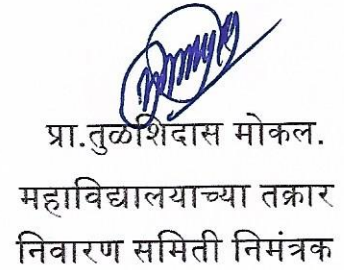 प्रा.तुळशिदास मोकल.
महाविद्यालयाच्या तक्रार
निवारण समिती निमंत्रक